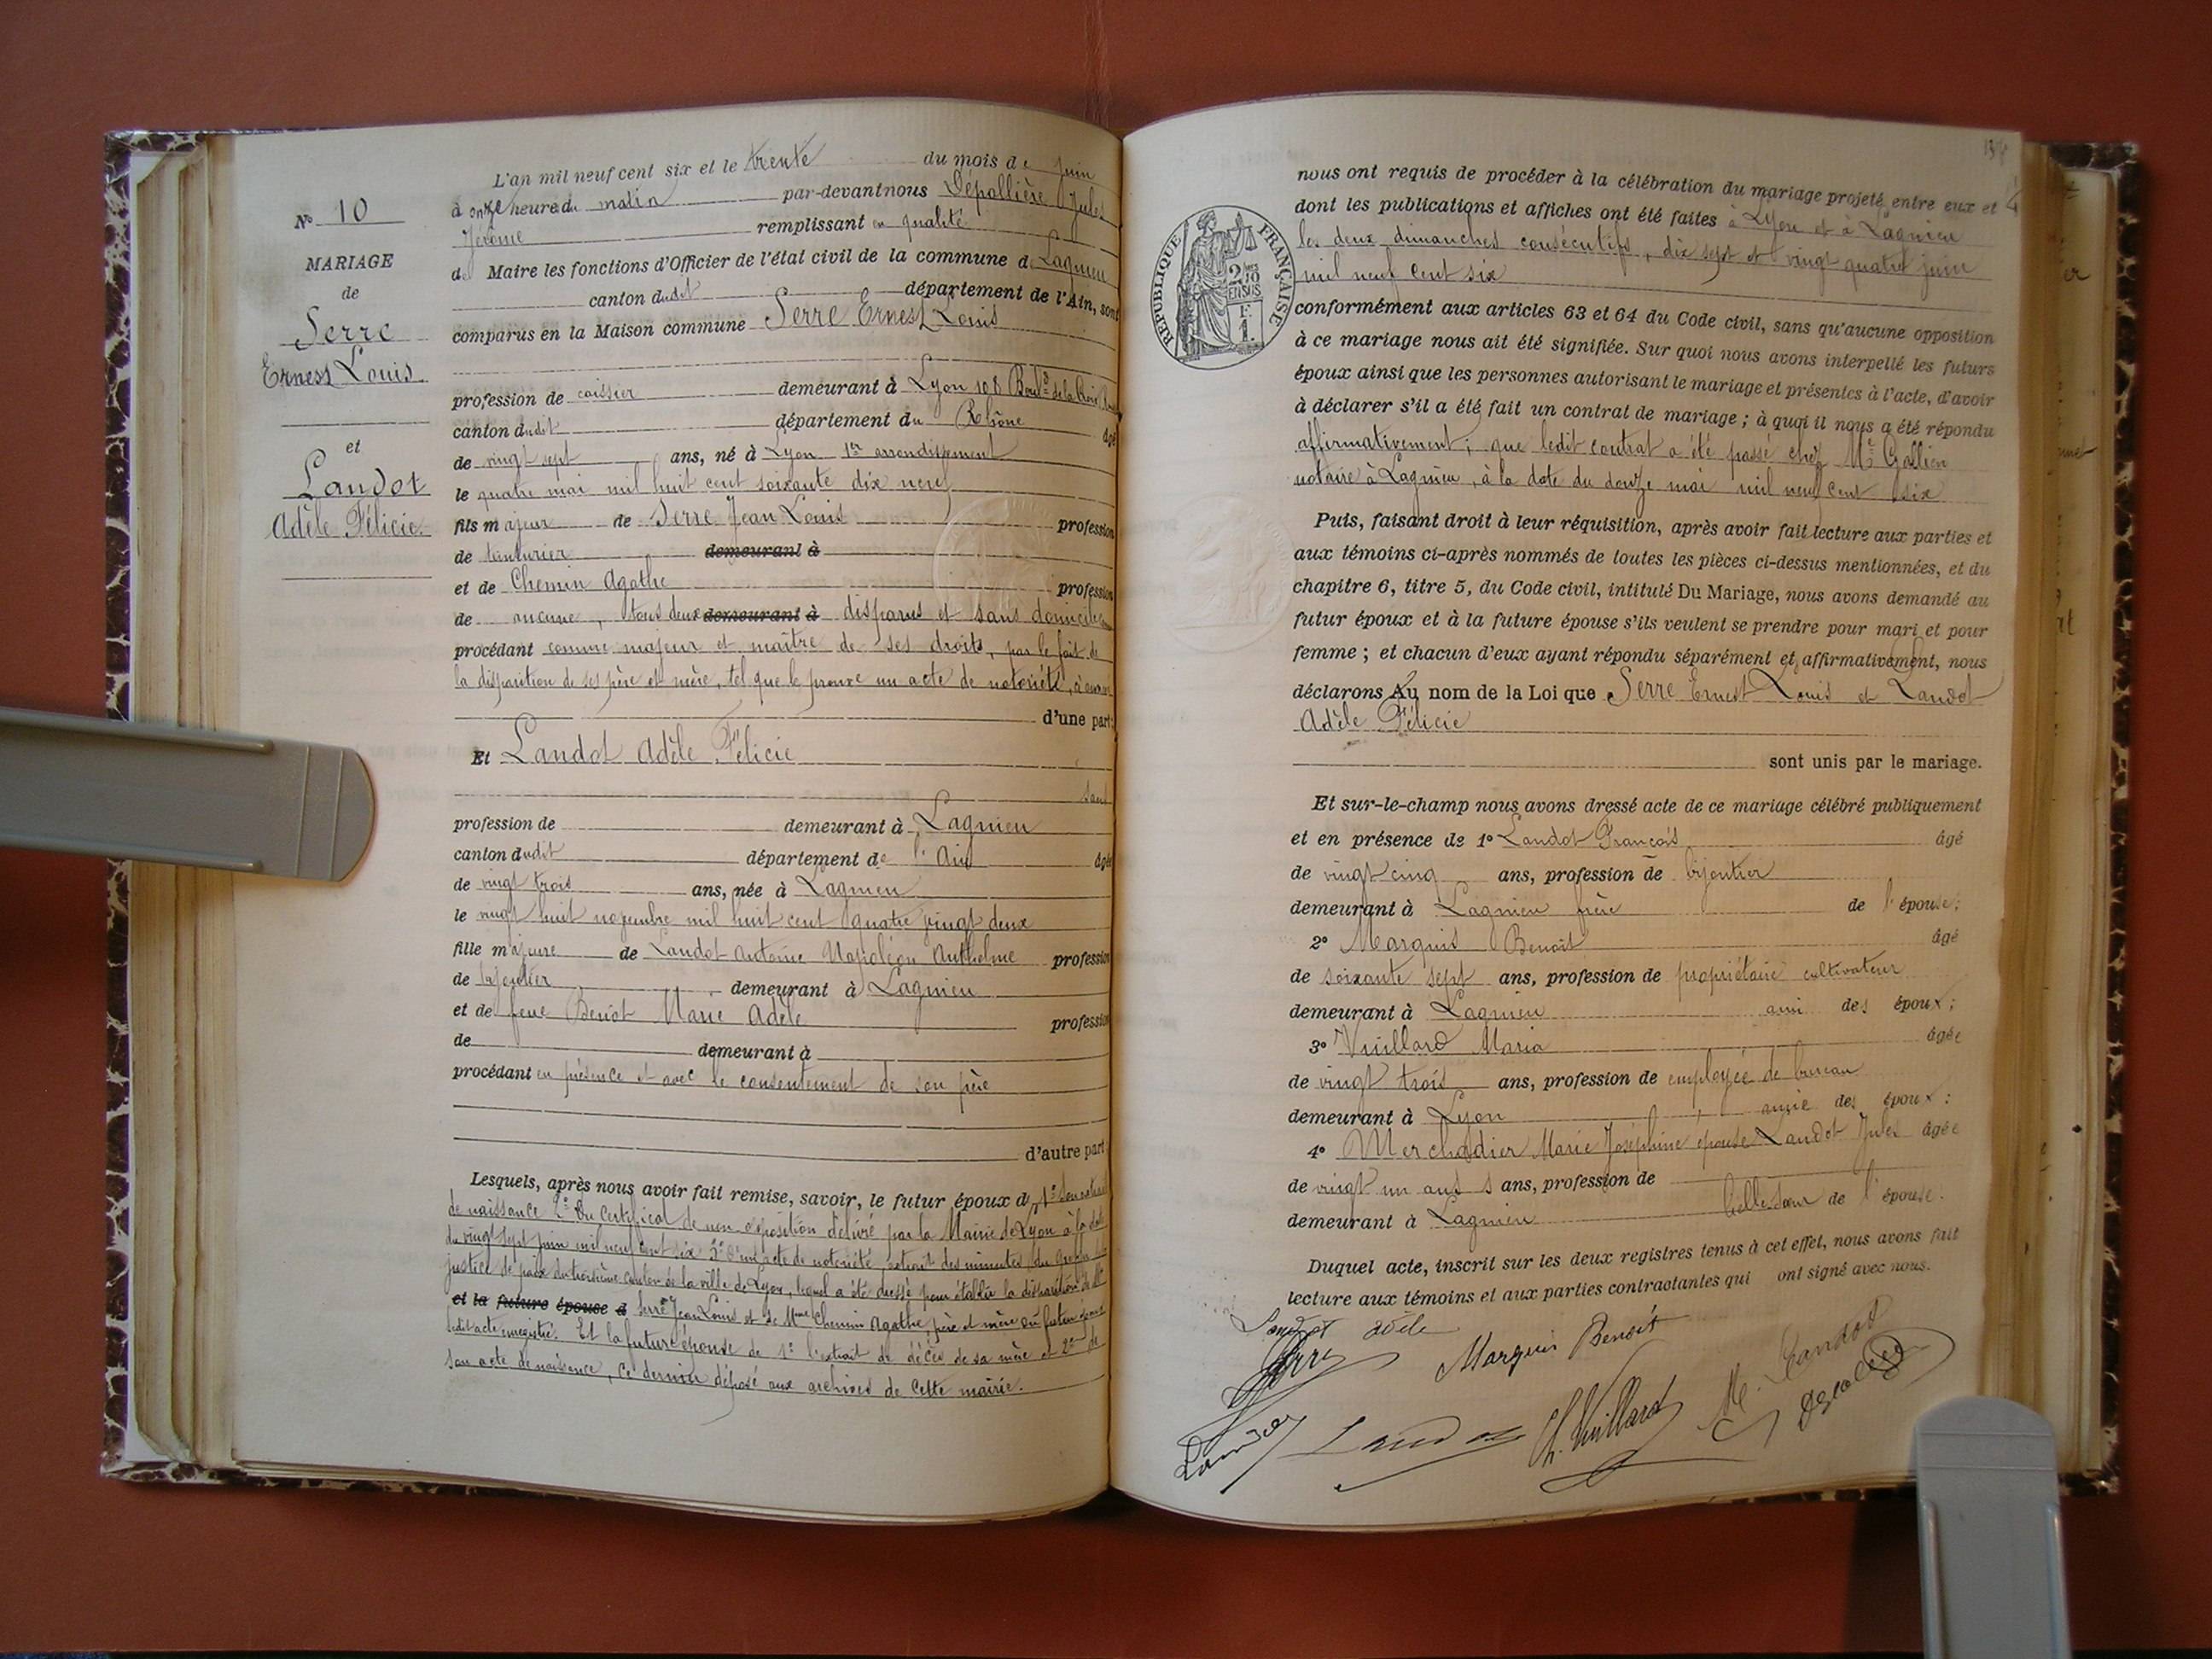 N° 10
MARIAGE
de
Serre
Ernest Louis
et
Landot
Adèle Félicie
L'an mil neuf cent six et le trente du mois de juin
à onze heure du matin par-devant nous Dépallière Jules
Jérôme remplissant en qualité
de Maire les fonctions d'Officier de l'état civil de la commune de Lagnieu
canton dudit département de l'Ain, sont
comparus en la Maison commune Serre Ernest Louis
profession de caissier demeurant à Lyon 108 Boulrd de la Croix
canton dudit département du Rhône âgé
de vingt sept ans, né à Lyon 1er arrondissement
le quatre mai mil huit cent soixante dix neuf
fils majeur de Serre Jean Louis profession
de teinturier demeurant à
et de Chemin Agathe profession
de aucune, tous deux demeurant à disparus et sans domicile
procédant comme majeur et maître de ses droits, par le fait de
la disparition de ses père et mère, tel que le prouve un acte de notoriété,
d'une part:
Et Landot Adèle Félicie
sans
profession de demeurant à Lagnieu
canton dudit département de l'Ain âgée
de vingt trois ans, née à Lagnieu
le vingt huit novembre mil huit cent quatre vingt deux
fille majeure de Landot Antoine Napoléon Anthelme profession
de bijoutier demeurant à Lagnieu
et de feue Benoît Marie Adèle profession
de demeurant à
procédant en présence et avec le consentement de son père
d'autre part
Lesquels, après nous avoir fait remise, savoir, le futur époux de 1° Son extrait
de naissance 2° Du Certificat de non opposition délivré par la Mairie de Lyon à la date
du vingt sept juin mil neuf cent six 3° D'un acte de notoriété, extrait des minutes du greffe de
justice de paix du troisième canton de la ville de Lyon, lequel a été dressé pour établir la disparition de Mr
et la future épouse d Serre Jean Louis et de Mme Chemin Agathe père et mère du futur époux
ledit acte enregistré. Et la future épouse de 1° l'extrait de décès de sa mère et 2° de
son acte de naissance, ce dernier déposé aux archives de cette mairie.
RÉPUBLIQUE FRANÇAISE
2/10 EN SUS
F.
1.
nous ont requis de procéder à la célébration du mariage projeté entre eux et
dont les publications et affiches ont été faites à Lyon et à Lagnieu
les deux dimanches consécutifs, dix sept et vingt quatre juin
mil neuf cent six
conformément aux articles 63 et 64 du Code civil, sans qu'aucune opposition
à ce mariage nous ait été signifiée. Sur quoi nous avons interpellé les futurs
époux ainsi que les personnes autorisant le mariage et présentes à l'acte, d'avoir
à déclarer s'il a été fait un contrat de mariage ; à quoi il nous a été répondu
affirmativement; que ledit contrat a été passé chez Me Gallien
notaire à Lagnieu, à la date du douze mai mil neuf cent six
Puis, faisant droit à leur réquisition, après avoir fait lecture aux parties et
aux témoins ci-après nommés de toutes les pièces ci-dessus mentionnées, et du
chapitre 6, titre 5, du Code civil, intitulé Du Mariage, nous avons demandé au
futur époux et à la future épouse s'ils veulent se prendre pour mari et pour
femme ; et chacun d'eux ayant répondu séparément et affirmativement, nous
déclarons Au nom de la Loi que Serre Ernest Louis et Landot
Adèle Félicie
sont unis par le mariage.
Et sur-le-champ nous avons dressé acte de ce mariage célébré publiquement
et en présence de 1° Landot François âgé
de vingt cinq ans, profession de bijoutier
demeurant à Lagnieu frère de l'épouse;
2° Marquis Benoît âgé
de soixante sept ans, profession de propriétaire cultivateur
demeurant à Lagnieu ami des époux;
3° Vuillard Maria âgée
de vingt trois ans, profession de employée de bureau
demeurant à Lyon, amie des époux:
4° Merchadier Marie Joséphine épouse Landot Jules âgée
de vingt un ans s ans, profession de
demeurant à Lagnieu belle sœur de l'épouse.
Duquel acte, inscrit sur les deux registres tenus à cet effet, nous avons fait
lecture aux témoins et aux parties contractantes qui ont signé avec nous.
Landot Adèle
Serre
Marquis Benoît
M. Landot
Landot
Landot
Vuillard